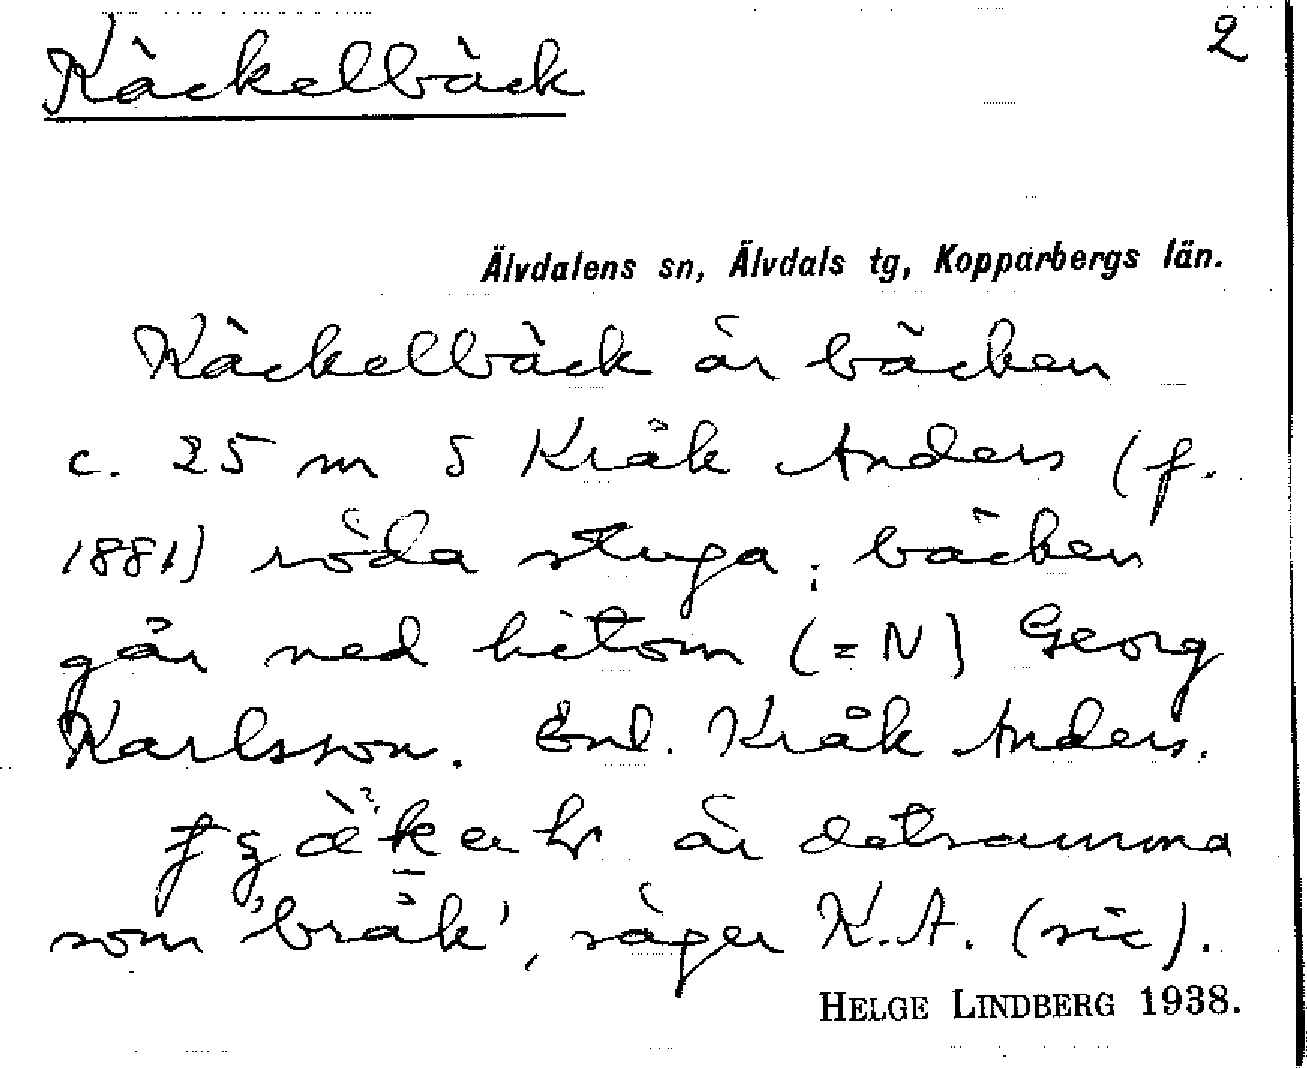 Käckelbäck
2
Älvdalens sn, Älvdals tg, Kopparbergs län.
Käckelbäck är bäcken
c. 25 m S Kråk Anders (f.
1881) röda stuga; bäcken
går ned hitom (=N) Georg
Karlsson. Enl. Kråk Anders.
är detsamma
som 'bråk', säger K.A. (sic).
HELGE LINDBERG 1938.